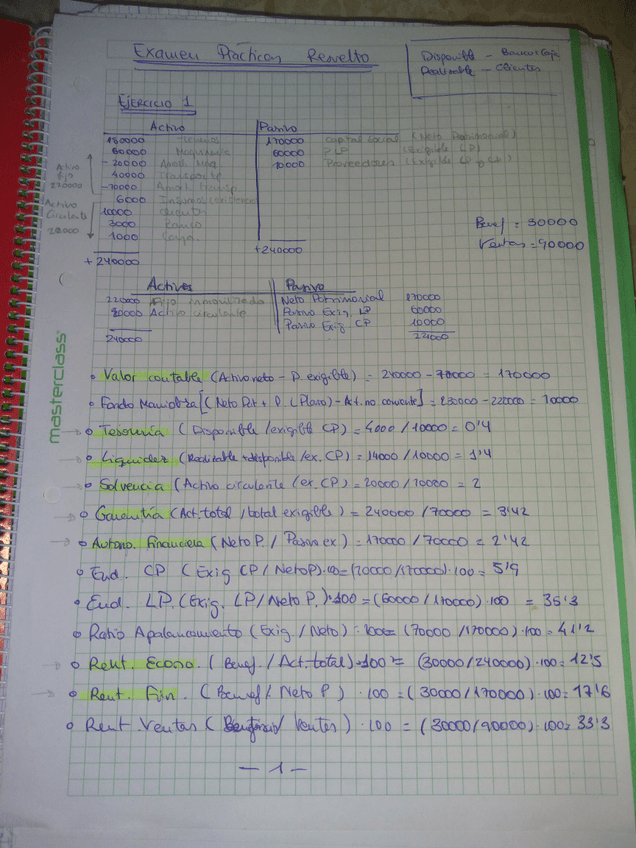 Examen Prácticas Resuelto
Disponible - Bancos Caja
Realizable - Clientes
EJERCICIO 1
Activo Pasivo
180000 170000 Capital Social (Neto Patrimonial)
60000 Maquinaria 60000 P LP (exigible LP)
-20000 Amort. Maq 10000 Proveedores (Exigible CP)
40000 Transporte
-70000 Amort. transp
6000
10000 clientes
3000 Banco
1000 Caja
+240000 +240000
Activo
Fijo
220000
Activo
Circulante
20000
Benef = 30000
Ventas = 90000
Activos Pasivo
220000 Fijo inmovilizado Neto Patrimonial 170000
20000 Activo circulante Pasivo Exig. LP 60000
Pasivo Exig. CP 10000
240000 24000
masterclass
• Valor contable (Activo neto - P. exigible) = 240000 - 70000 = 170000
• Fondo Maniobra [(Neto Pat + P. L Plazo) - Act. no corriente] = 230000 - 220000 = 10000
• Tesorería (Disponible / exigible CP) = 4000 / 10000 = 0'4
• Liquidez (Realizable + disponible / ex. CP) = 14000 / 10000 = 1'4
• Solvencia (Activo circulante / ex. CP) = 20000 / 10000 = 2
• Garantía (Act. total / total exigible) = 240000 / 70000 = 3'42
• Autono. Financiera (Neto P. / Pasivo ex) = 170000 / 70000 = 2'42
• End. CP (Exig CP / Neto P) · 100 = (10000 / 170000) · 100 = 5'9
• End. LP. (Exig. LP / Neto P.) · 100 = (60000 / 170000) · 100 = 35'3
• Ratio Apalancamiento (Exig. / Neto) · 100 = (70000 / 170000) · 100 = 41'2
• Rent. Econo. (Benef. / Act. total) · 100 = (30000 / 240000) · 100 = 12'5
• Rent. Fin. (Benef / Neto P) · 100 = (30000 / 170000) · 100 = 17'6
• Rent. Ventas ( / Ventas) · 100 = (30000 / 90000) · 100 = 33'3
- 1 -